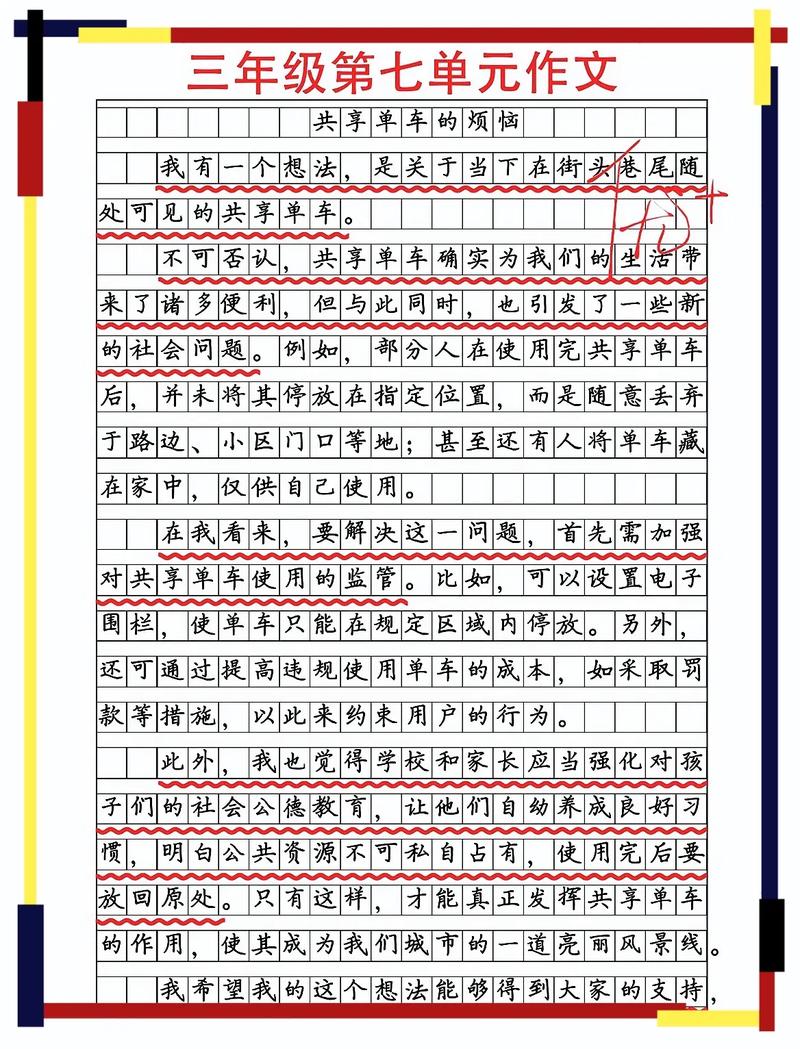 三年级第七单元作文
共享单车的烦恼
我有一个想法，是关于当下在街头巷尾随
处可见的共享单车。
优+
不可否认，共享单车确实为我们的生活带
来了诸多便利，但与此同时，也引发了一些新
的社会问题。例如，部分人在使用完共享单车
后，并未将其停放在指定位置，而是随意丢弃
于路边、小区门口等地；甚至还有人将单车藏
在家中，仅供自己使用。
在我看来，要解决这一问题，首先需加强
对共享单车使用的监管。比如，可以设置电子
围栏，使单车只能在规定区域内停放。另外，
还可通过提高违规使用单车的成本，如采取罚
款等措施，以此来约束用户的行为。
此外，我也觉得学校和家长应当强化对孩
子们的社会公德教育，让他们自幼养成良好习
惯，明白公共资源不可私自占有，使用完后要
放回原处。只有这样，才能真正发挥共享单车
的作用，使其成为我们城市的一道亮丽风景线。
我希望我的这个想法能够得到大家的支持，